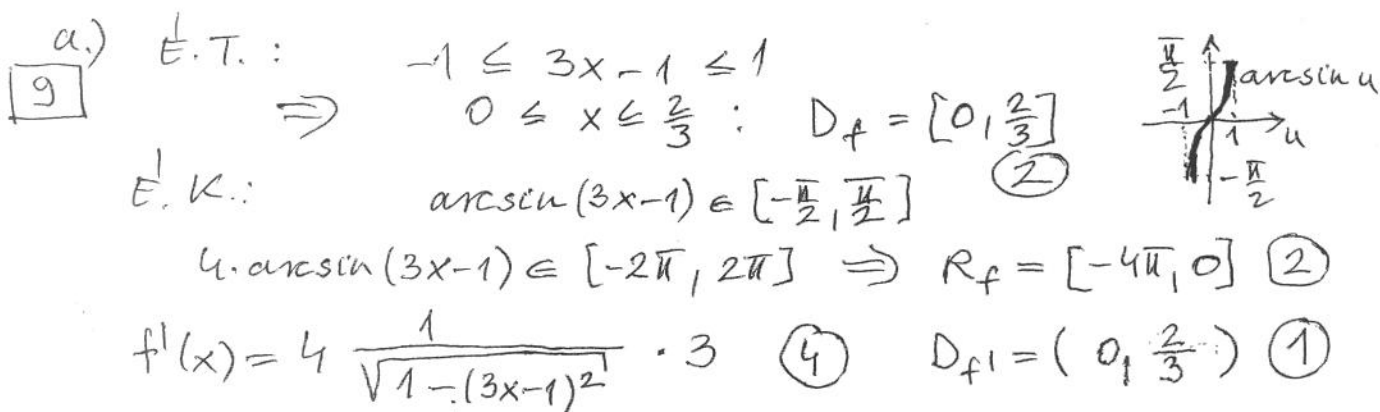 a.) É.T.: -1 ≤ 3x-1 ≤ 1
9
⇒ 0 ≤ x ≤ 2/3 : D_f = [0, 2/3]
②
π/2
arcsin u
-1
1
u
-π/2
É.K.: arcsin(3x-1) ∈ [-π/2, π/2]
4·arcsin(3x-1) ∈ [-2π, 2π] ⇒ R_f = [-4π, 0] ②
f'(x) = 4 1/√(1-(3x-1)²) · 3 ④ D_f' = (0, 2/3) ①